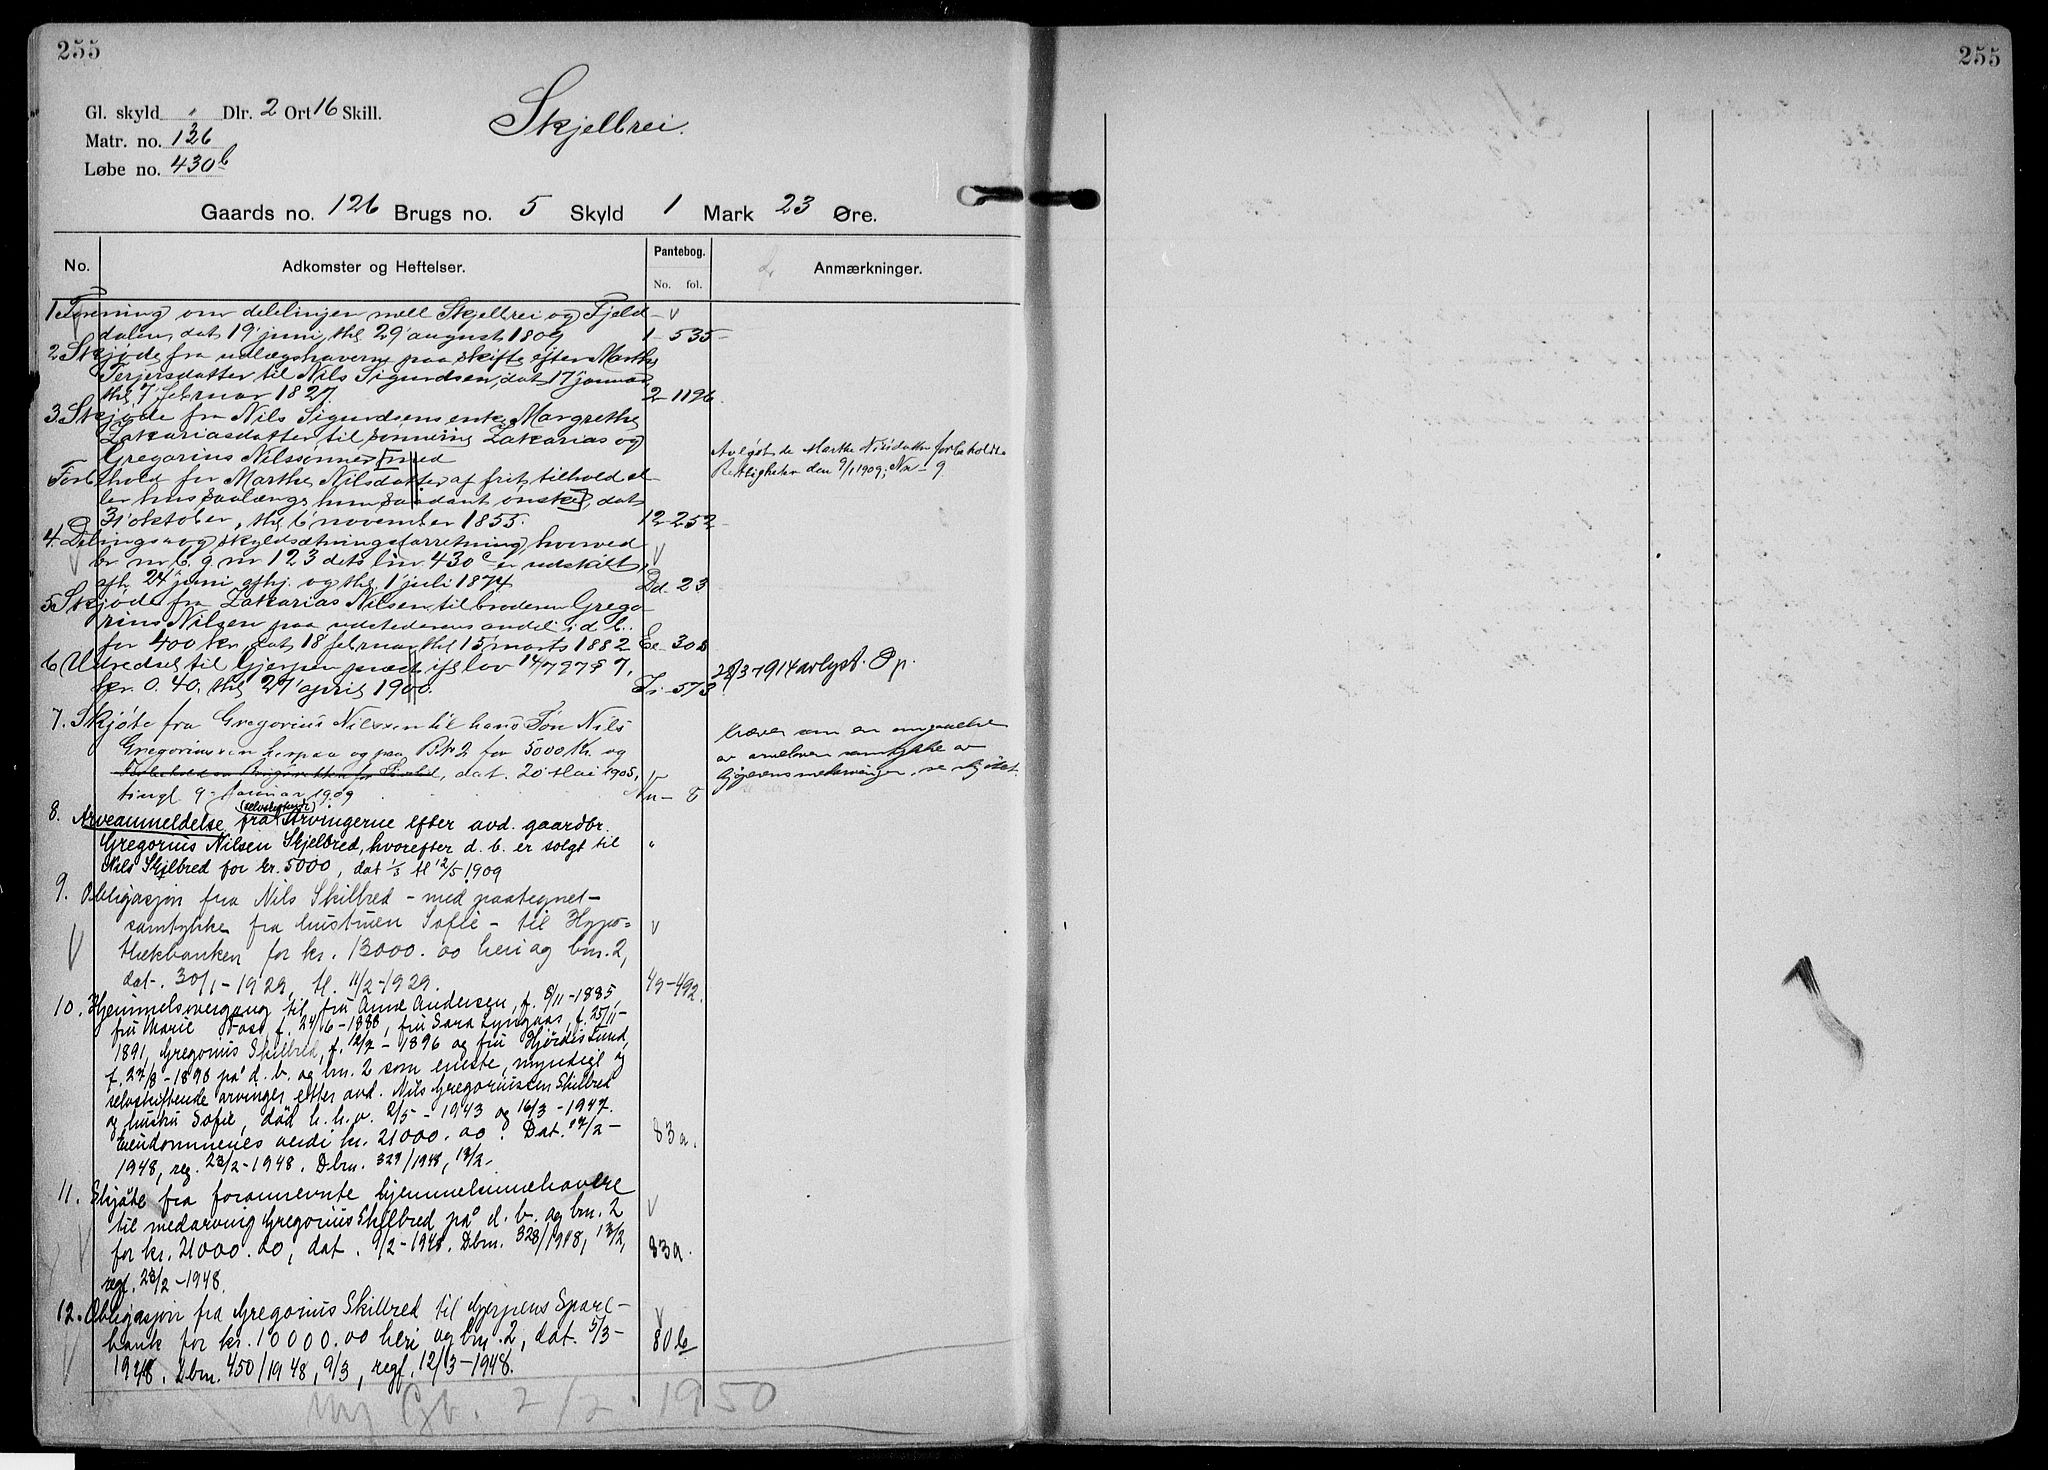 255
255
Gl. skyld " Dlr. 2 Ort 16 Skill.
Matr. no. 126
Løbe no. 430 b
Skjelbrei.
Gaards no. 126 Brugs no. 5 Skyld 1 Mark 23 Øre.
No. Adkomster og Heftelser. Pantebog. Anmærkninger.
No. fol.
1 Forening om delelinjen mell. Skjelbrei og Fjeld-
dalen, dat 19 juni, thl 29 august 1809 1-535
2 Skjøde fra udlægshaverne paa skifte efter Marthe
Terjersdatter til Nils Sigurdsen, dat 17 januar,
thl 7 februar 1827. 2-1196
3 Skjøde fra Nils Sigurdsens enke Margrethe
Zakariasdatter til sønnerne Zakarias og
Gregorius Nilssønner [med
Forbehold for Marthe Nilsdatter af frit tilhold el-
ler hus saalænge hun saadant ønsker], dat
31 oktober, thl 6 november 1855. 12-252
Avløst de Marthe Nilsdatter forbeholdte
Rettigheter den 9/1 1909; Nn-9
4. Delings- og skyldsætningsforretning, hvorved
br nr 6 g. nr 123 dets lnr. 430 c er udskilt,
afh. 24 juni afhj. og thl 1 juli 1874 Dd. 23
5 Skjøde fra Zakarias Nilsen til broderen Grego-
rius Nilsen paa udstederens andel i d. b.
for 400 kr, dat 18 februar thl 15 marts 1882 Ee-308
6 Udredsel til Gjerpen præst. ifl lov 14/7 97 § 7,
kr. 0.40. thl 27 april 1900. Ii-573
22/3-1914 avlyst. Op.
7. Skjøte fra Gregorius Nilssen til hans Søn Nils
Gregoriussen herpaa og paa Bn 2 for 5000 Kr. og
Forbehold om, dat. 20 Mai 1905,
tingl. 9 Januar 1909 Nn-8
som en
av samtykke av
se skjøtet
8. Arveanmeldelse fra (selvskiftende) Arvingerne efter avd. gaardbr.
Gregorius Nilsen Skjelbred, hvorefter d. b. er solgt til "
Nils Skilbred for kr. 5000, dat 1/5 tl 12/5 1909
9. Obligasjon fra Nils Skilbred - med paategnet
samtykke fra hustruen Sofie - til Hypo=
thekbanken for kr. 13000.00 heri og bnr. 2,
dat. 30/1-1929, tl. 11/2-1929. 49-492.
10. Hjemmelsovergang til fru Anne Andersen, f. 8/11-1885,
fru Marie Foss, f. 24/6-1888, fru Sara Lyngaas, f. 25/11-
1891, Gregorius Skilbred, f. 12/2-1896 og fru Hjørdis Lund,
f. 27/8-1898 på d. b. og bnr. 2 som eneste, myndige og
selvskiftende arvinger efter avd. Nils Gregoriussen Skilbred
og hustru Sofie, død h. h. v. 2/5-1943 og 16/3-1947.
Eiendommenes verdi kr. 21000.00. Dat. 07/2-
1948, reg. 23/2-1948. Dbnr. 327/1948, 13/2. 83a.
11. Skjøte fra forannevnte hjemmelsinnehavere
til medarving Gregorius Skilbred på d. b. og bnr. 2
for kr. 21000.00, dat. 9/2-1948. Dbnr. 328/1948, 13/2, 83a.
regf. 23/2-1948.
12. Obligasjon fra Gregorius Skilbred til Gjerpens Spare-
bank for kr. 10000.00 heri og bnr. 2, dat. 5/3- 80b
1948. Dbnr. 450/1948, 9/3, regf. 12/3-1948.
Ny Gb. 2/2. 1950